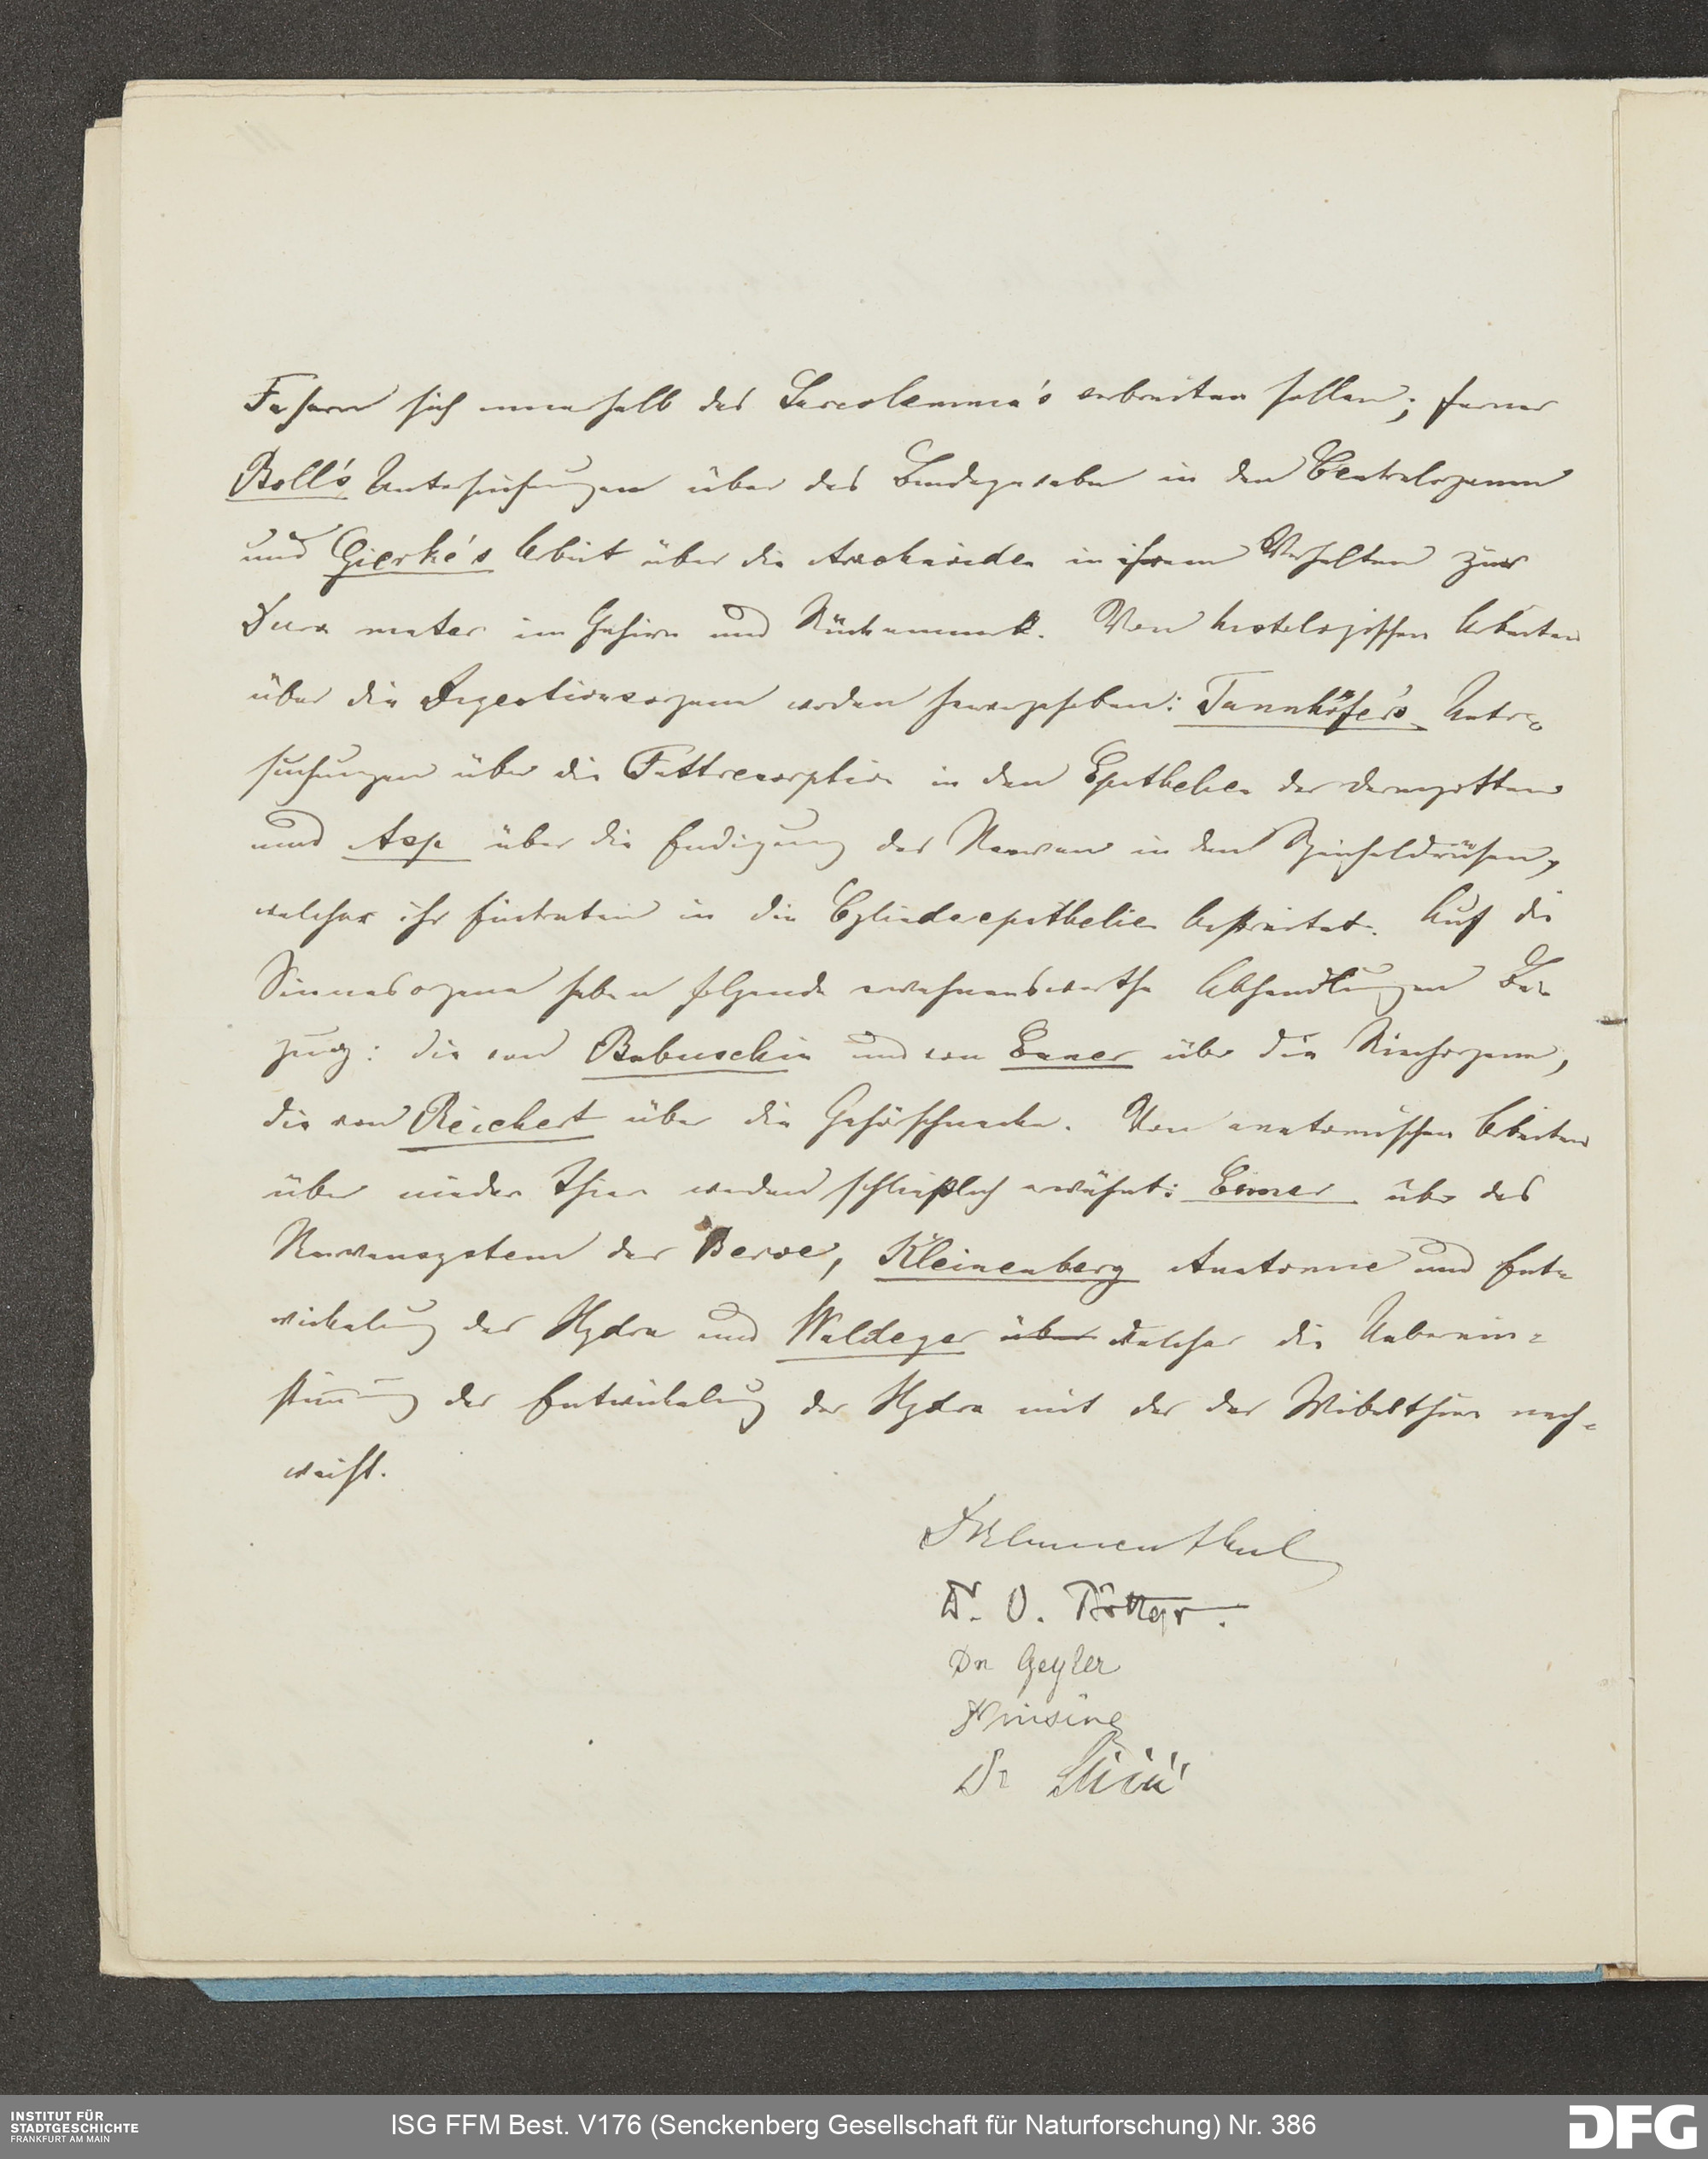 Fasern sich innerhalb des Sarcolemma's verbreiten sollen; ferner
Boll's Untersuchungen über das Bindegewebe in den Centralorganen
und Gierke's Arbeit über die Arachnoidea in ihrem Verhalten zur
Dura mater im Gehirn und Rückenmark. Von histologischen Arbeiten
über die Digestionsorgane werden hervorgehoben: Tannhöfer's Untersuchungen
suchungen über die Fettresorption in den Epithelien der Darmzotten
und Asp über die Endigung der Nerven in den Speicheldrüsen,
welcher ihr Eintreten in die Cylinderepithelien bestreitet. Auf die
Sinnesorgane haben folgende erwähnenswerthe Abhandlungen Be-
zug: die von Babuschin und von Exner über die Riechorgane,
die von Reichert über die Gehörschnecke. Von anatomischen Arbeiten
über niedere Thiere werden schließlich erwähnt: Eimer über das
Nervensystem der Beroe, Kleinenberg Anatomie und Ent-
wickelung der Hydra und Waldeyer über welcher die Ueberein-
stimmung der Entwickelung der Hydra mit der der Wirbelthiere nach-
weist.
Blumenthal
Dr. O. Böttger.
Dr Geyler
Dr
INSTITUT FÜR
STADTGESCHICHTE
FRANKFURT AM MAIN
ISG FFM Best. V176 (Senckenberg Gesellschaft für Naturforschung) Nr. 386
DFG